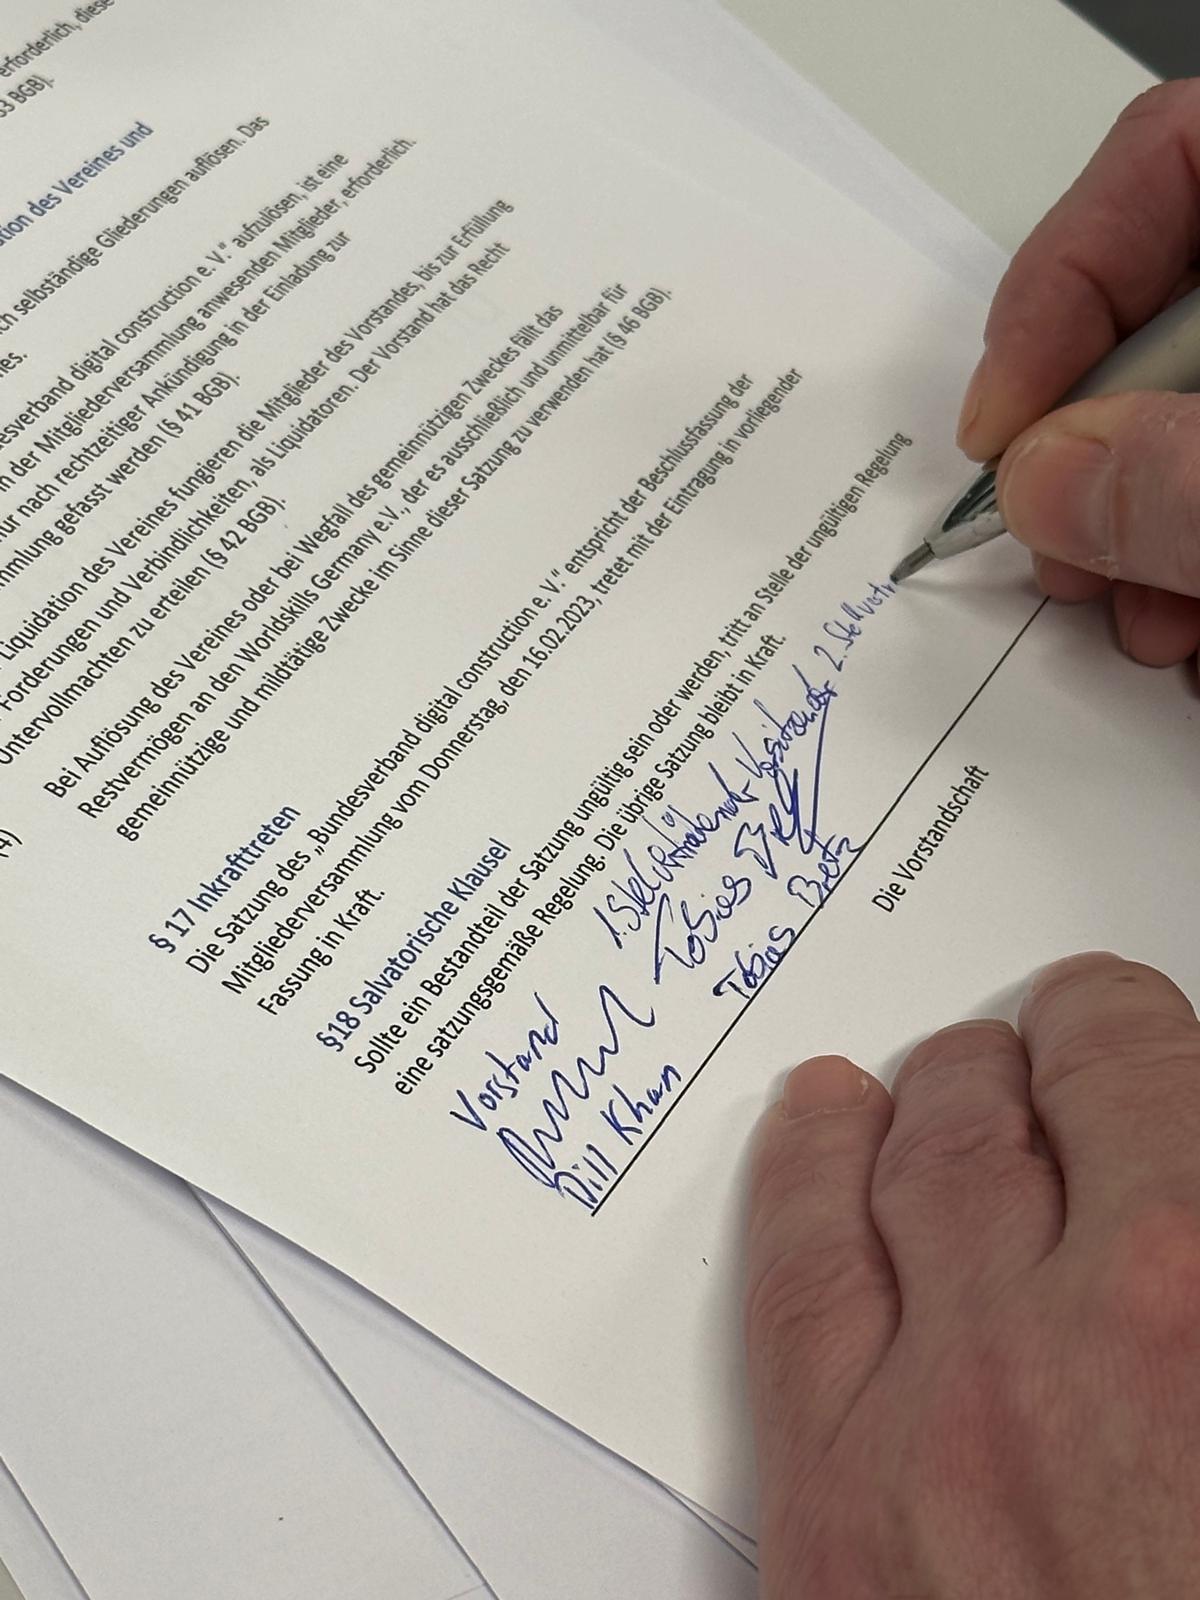 erforderlich, diese
33 BGB).
ation des Vereines und
selbständige Gliederungen auflösen. Das
esverband digital construction e. V.“ aufzulösen, ist eine
in der Mitgliederversammlung anwesenden Mitglieder, erforderlich.
nur nach rechtzeitiger Ankündigung in der Einladung zur
mmlung gefasst werden (§ 41 BGB).
Liquidation des Vereines fungieren die Mitglieder des Vorstandes, bis zur Erfüllung
Forderungen und Verbindlichkeiten, als Liquidatoren. Der Vorstand hat das Recht
Untervollmachten zu erteilen (§ 42 BGB).
(4)
Bei Auflösung des Vereines oder bei Wegfall des gemeinnützigen Zweckes fällt das
Restvermögen an den Worldskills Germany e.V., der es ausschließlich und unmittelbar für
gemeinnützige und mildtätige Zwecke im Sinne dieser Satzung zu verwenden hat (§ 46 BGB).
§ 17 Inkrafttreten
Die Satzung des „Bundesverband digital construction e. V.“ entspricht der Beschlussfassung der
Mitgliederversammlung vom Donnerstag, den 16.02.2023, tretet mit der Eintragung in vorliegender
Fassung in Kraft.
§18 Salvatorische Klausel
Sollte ein Bestandteil der Satzung ungültig sein oder werden, tritt an Stelle der ungültigen Regelung
eine satzungsgemäße Regelung. Die übrige Satzung bleibt in Kraft.
Vorstand 1. Vorsitzender 2. Stellvertr
Tobias
Dill Khan Tobias Bretz
Die Vorstandschaft